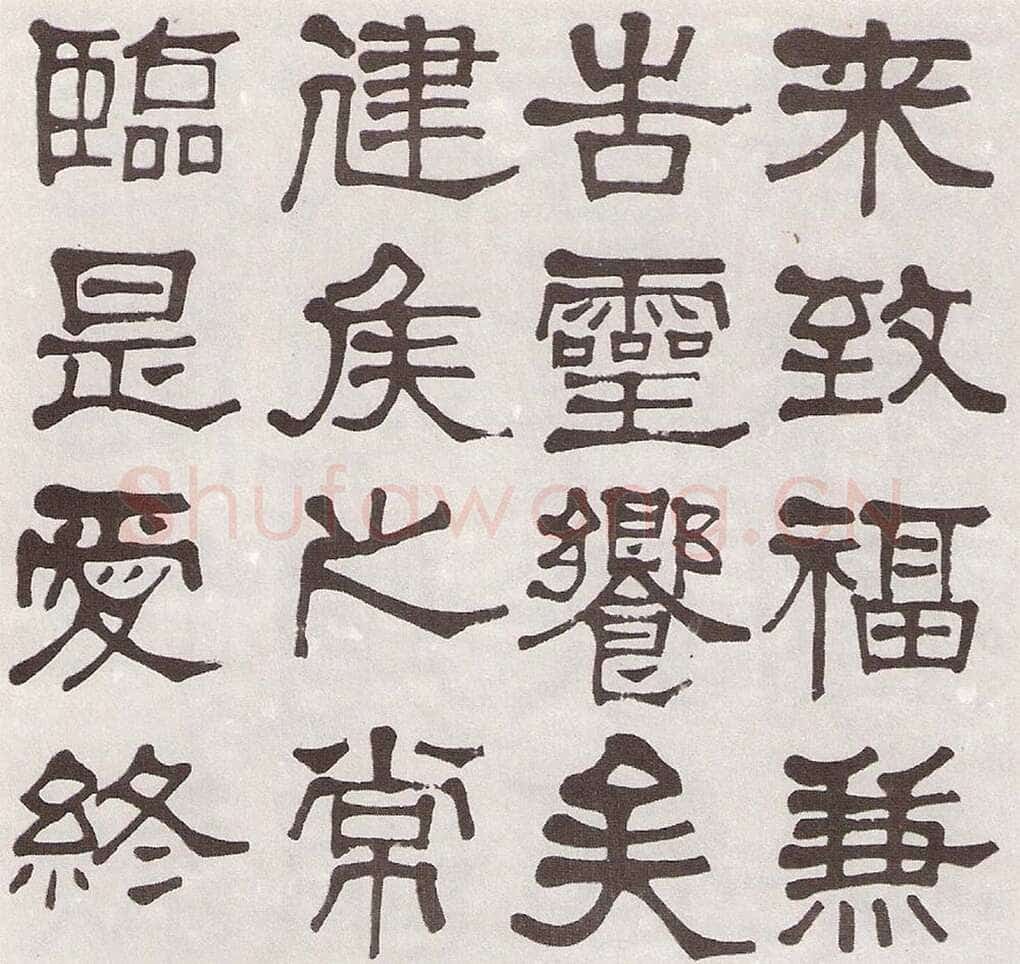 来致福兼
告靈饗矣
建矦之常
臨是愛終
Shufawang.CN